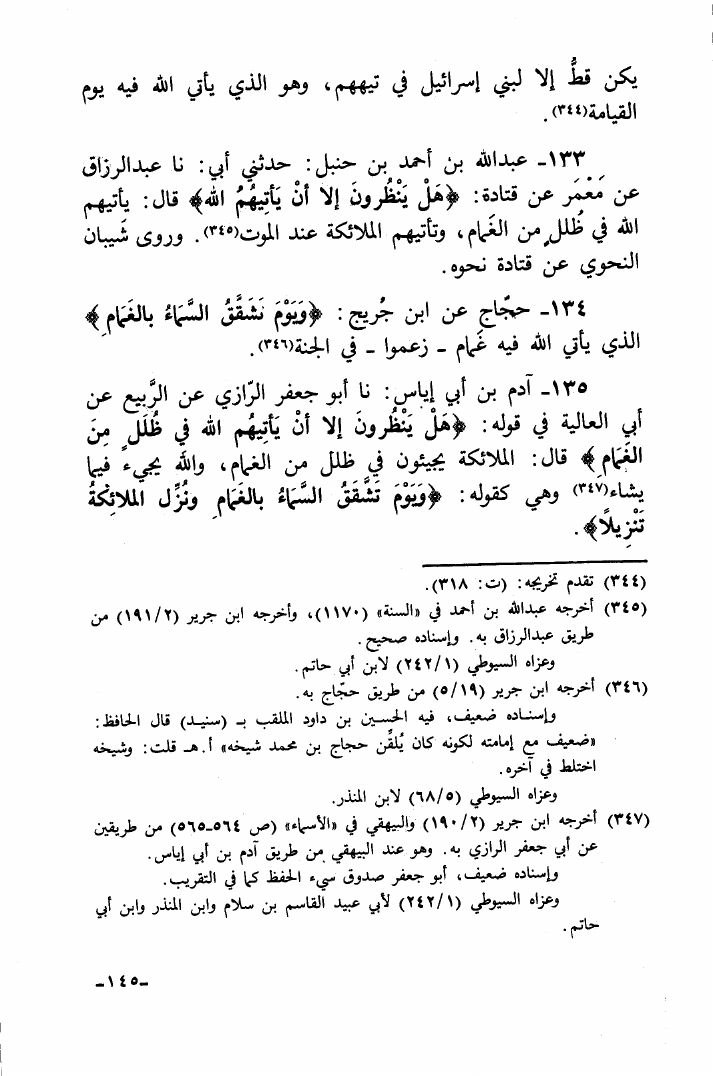 يكن قطُّ إلا لبني إسرائيل في تيههم، وهو الذي يأتي الله فيه يوم
القيامة(٣٤٤).
١٣٣ـ عبدالله بن أحمد بن حنبل: حدثني أبي: نا عبدالرزاق
عن مَعْمَر عن قتادة: ﴿هَلْ يَنْظُرونَ إلا أنْ يَأتِيهُمُ الله﴾ قال: يأتيهم
الله في ظُللٍ من الغَمام، وتأتيهم الملائكة عند الموت(٣٤٥). وروى شَيبان
النحوي عن قتادة نحوه.
١٣٤ـ حجّاج عن ابن جُريج: ﴿وَيَوْمَ تَشَقَّقُ السَّمَاءُ بالغَمَامِ﴾
الذي يأتي الله فيه غَمام ـ زعموا ـ في الجنة(٣٤٦).
١٣٥ـ آدم بن أبي إياس: نا أبو جعفر الرّازي عن الرَّبيع عن
أبي العالية في قوله: ﴿هَلْ يَنْظُرونَ إلا أنْ يَأتِيهُم الله في ظُلَلٍ مِنَ
الغَمَامِ﴾ قال: الملائكة يجيئون في ظلل من الغمام، والله يجيء فيما
يشاء(٣٤٧) وهي كقوله: ﴿وَيَوْمَ تَشَّقَقُ السَّمَاءُ بالغَمَامِ ونُزِّل الملائِكةُ
تَنْزِيلاً﴾.
(٣٤٤) تقدم تخريجه: (ت: ٣١٨).
(٣٤٥) أخرجه عبدالله بن أحمد في «السنة» (١١٧٠)، وأخرجه ابن جرير (١٩١/٢) من
طريق عبدالرزاق به. وإسناده صحيح.
وعزاه السيوطي (٢٤٢/١) لابن أبي حاتم.
(٣٤٦) أخرجه ابن جرير (٥/١٩) من طريق حجّاج به.
وإسناده ضعيف، فيه الحسين بن داود الملقب بـ (سنيد) قال الحافظ:
«ضعيف مع إمامته لكونه كان يُلقّن حجاج بن محمد شيخه» أ.هـ قلت: وشيخه
اختلط في آخره.
وعزاه السيوطي (٦٨/٥) لابن المنذر.
(٣٤٧) أخرجه ابن جرير (١٩٠/٢) والبيهقي في «الأسماء» (ص ٥٦٤ـ٥٦٥) من طريقين
عن أبي جعفر الرازي به. وهو عند البيهقي من طريق آدم بن أبي إياس.
وإسناده ضعيف، أبو جعفر صدوق سيء الحفظ كما في التقريب.
وعزاه السيوطي (٢٤٢/١) لأبي عبيد القاسم بن سلام وابن المنذر وابن أبي
حاتم.
ـ١٤٥ـ